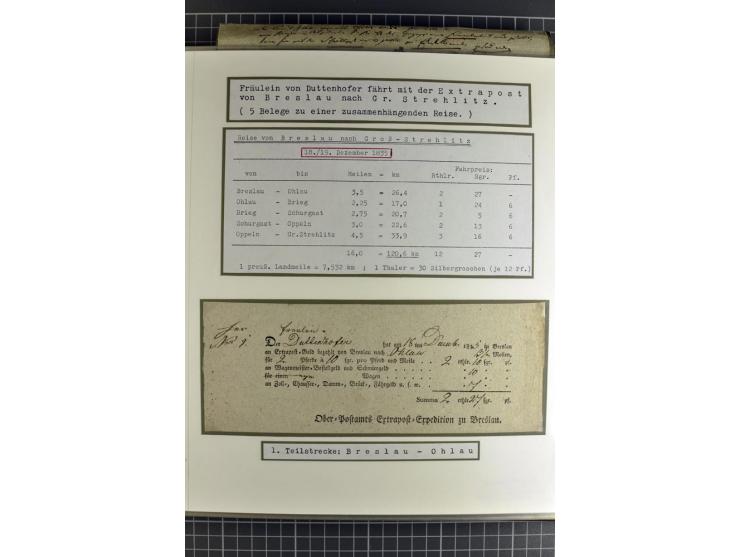 Fräulein von Duttenhofer fährt mit der Extrapost
von Breslau nach Gr. Strehlitz.
( 5 Belege zu einer zusammenhängenden Reise. )
Reise von Breslau nach Groß-Strehlitz
18./19. Dezember 1835
Fahrpreis:
von bis Meilen = km Rthlr. Sgr. Pf.
Breslau - Ohlau 3,5 = 26,4 2 27 -
Ohlau - Brieg 2,25 = 17,0 1 24 6
Brieg - Schurgast 2,75 = 20,7 2 5 6
Schurgast - Oppeln 3,0 = 22,6 2 13 6
Oppeln - Gr.Strehlitz 4,5 = 33,9 3 16 6
16,0 = 120,6 km 12 27 -
1 preuß. Landmeile = 7,532 km ; 1 Thaler = 30 Silbergroschen (je 12 Pf.)
Fräulein
Der Duttenhofer hat am 18 ten in Breslau
an Extrapost-Geld bezahlt von Breslau nach Ohlau Meilen,
für 2 Pferde à 10 sgr. pro Pferd und Meile 2 rthlr. sgr. pf.
an Wagenmeister-Bestellgeld und Schmiergeld
für einen Wagen
an Zoll-, Chaussee-, Damm-, Brück-, Fährgeld u. s. w.
Summa 2 rthlr. 27 sgr. pf.
Ober-Postamts Extrapost-Expedition zu Breslau.
1. Teilstrecke: Breslau - Ohlau